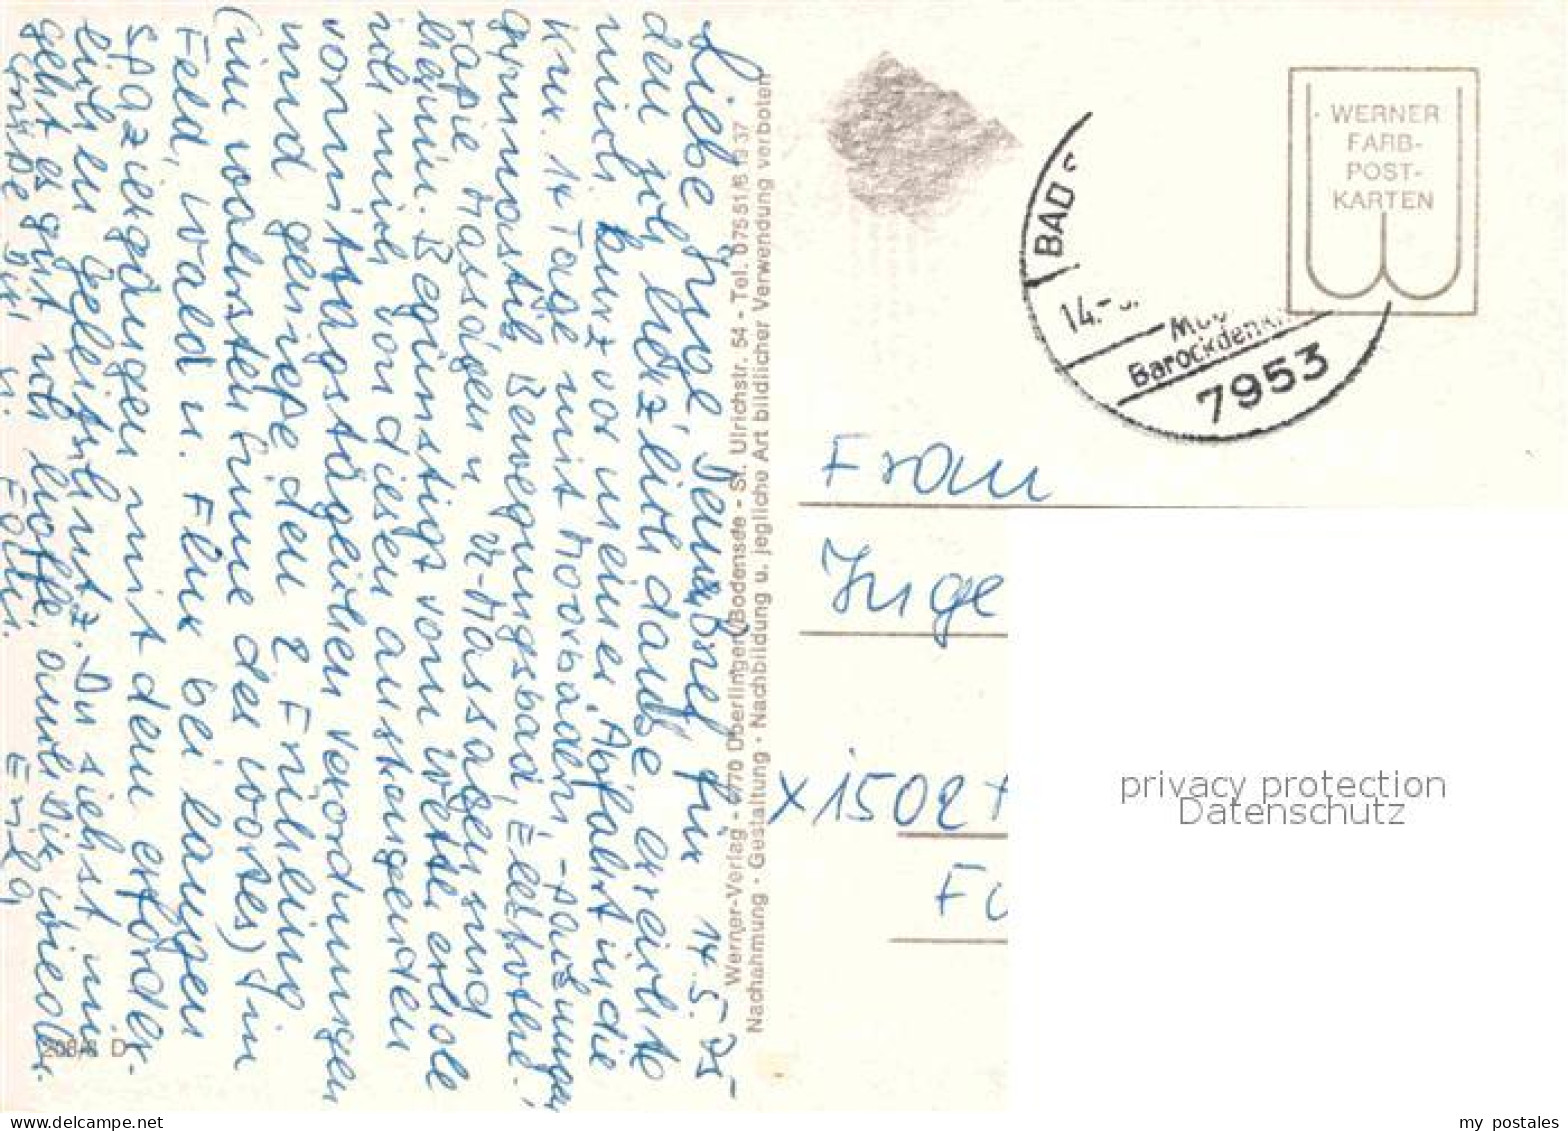 Liebe Inge, für 14.5.75
den ich herzlich danke erreichte
mich kurz vor meiner Abfahrt in die
Kur. 14 Tage mit Moorbädern, -packungen
gymnastik Bewegungsbad, Elektrothe-
rapie Massagen u. V-Massagen sind
herum. Begünstigt vom Wetter erhole
ich mich von diesen anstrengenden
vormittagstäglichen Verordnungen
und genieße den 2. Frühling
(im wahrsten Sinne des Wortes) in
Feld, Wald u. Flur bei langen
Spaziergängen mit dem erforder-
lichen Geleitschutz. Du siehst mir
geht es gut ich hoffe, auch Dir wieder.
Erika
208/4 D
Werner-Verlag - 7770 Überlingen/Bodensee - St. Ulrichstr. 54 - Tel. 07551/61937
Nachahmung · Gestaltung · Nachbildung u. jegliche Art bildlicher Verwendung verboten
WERNER
FARB-
POST-
KARTEN
BAD S
14.-
Moo
Barockdenkm
7953
Frau
Inge
X 1502
privacy protection
Datenschutz
www.delcampe.net
my_postales